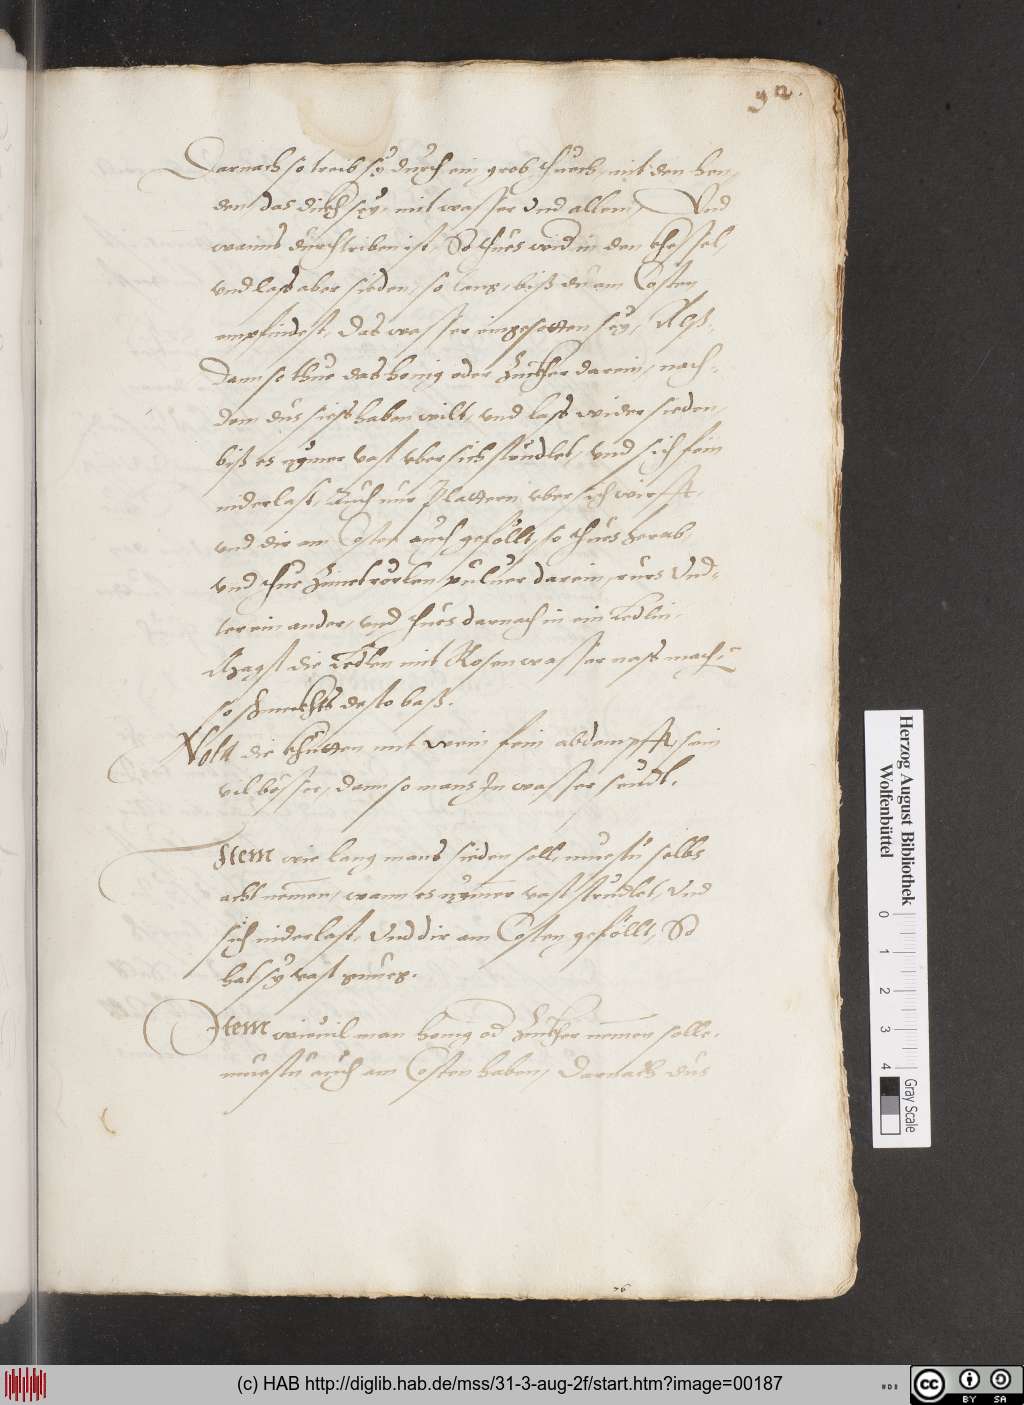 92.
Darnach so treib sy durch ein grob thuech, mit den hen,
den das dickh sey, mit wasser vnd allem, Vnd
wanns durchtriben ist, So thues wid in den khessel,
vnd lass aber sieden, so lang, biß du am Costen
empfindest, das wasser eingesotten sey, Als
Dann so thue das honig oder Zuckher darein, nach-
dem dus siess haben wilt, vnd lass wider sieden,
biß es nymer vast vbersich strudlet, vnd sich fein
niderlast, Auch nur Plattern vbersich wirfft,
vnd dir am Costen auch geföllt, so thues herab,
vnd thue Zimetrörlen puluer darein, rürs Vnd-
ter ein ander, vnd thues darnach in ein Ledlin,
Magst die Ledlen mit Rosenwasser nass mach,
so schmeckhts desto baß.
Nota die khütten mit wein fein abdempfft, sein
vil bösser, dann so mans In wasser seudt.
Item wie lang mans sieden soll, muestu selbs
acht nemen, wann es nymer vast strudlet, Vnd
sich niderlast, Vnd dir am Costen geföllt, So
hat sy vast gnueg.
Item wieuil man honig od Zuckher nemen solle,
muestu auch am Costen haben, Darnach dus
Herzog August Bibliothek
Wolfenbüttel
0 1 2 3 4
Gray Scale
(c) HAB http://diglib.hab.de/mss/31-3-aug-2f/start.htm?image=00187
cc BY SA